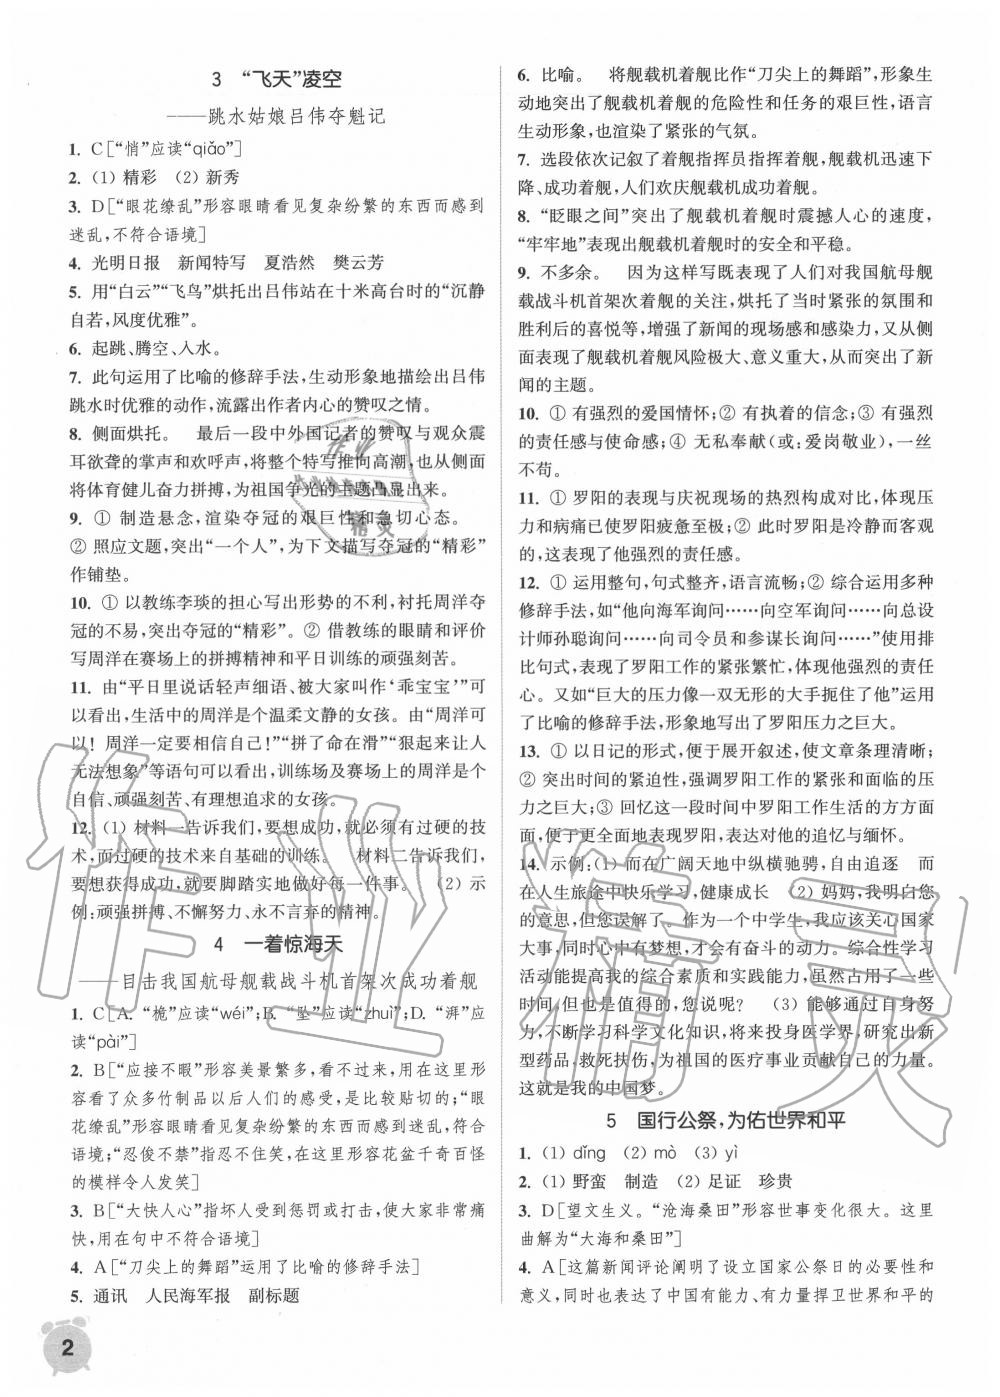 3 “飞天”凌空
——跳水姑娘吕伟夺魁记
1. C[“悄”应读“qiǎo”]
2. (1) 精彩 (2) 新秀
3. D[“眼花缭乱”形容眼睛看见复杂纷繁的东西而感到
迷乱,不符合语境]
4. 光明日报 新闻特写 夏浩然 樊云芳
5. 用“白云”“飞鸟”烘托出吕伟站在十米高台时的“沉静
自若,风度优雅”。
6. 起跳、腾空、入水。
7. 此句运用了比喻的修辞手法,生动形象地描绘出吕伟
跳水时优雅的动作,流露出作者内心的赞叹之情。
8. 侧面烘托。 最后一段中外国记者的赞叹与观众震
耳欲聋的掌声和欢呼声,将整个特写推向高潮,也从侧面
将体育健儿奋力拼搏,为祖国争光的主题凸显出来。
9. ① 制造悬念,渲染夺冠的艰巨性和急切心态。
② 照应文题,突出“一个人”,为下文描写夺冠的“精彩”
作铺垫。
10. ① 以教练李琰的担心写出形势的不利,衬托周洋夺
冠的不易,突出夺冠的“精彩”。② 借教练的眼睛和评价
写周洋在赛场上的拼搏精神和平日训练的顽强刻苦。
11. 由“平日里说话轻声细语、被大家叫作‘乖宝宝’”可
以看出,生活中的周洋是个温柔文静的女孩。由“周洋可
以!周洋一定要相信自己!”“拼了命在滑”“狠起来让人
无法想象”等语句可以看出,训练场及赛场上的周洋是个
自信、顽强刻苦、有理想追求的女孩。
12. (1) 材料一告诉我们,要想成功,就必须有过硬的技
术,而过硬的技术来自基础的训练。 材料二告诉我们,
要想获得成功,就要脚踏实地做好每一件事。 (2) 示
例:顽强拼搏、不懈努力、永不言弃的精神。
4 一着惊海天
——目击我国航母舰载战斗机首架次成功着舰
1. C[A. “桅”应读“wéi”;B. “坠”应读“zhuì”;D. “湃”应
读“pài”]
2. B[“应接不暇”形容美景繁多,看不过来,用在这里形
容看了众多竹制品以后人们的感受,是比较贴切的;“眼
花缭乱”形容女孩子的衣服多,人们的感受,不符合
语境;“忍俊不禁”指忍不住笑,形容花盆千奇百怪
的模样令人发笑]
3. B[“大快人心”指坏人受到惩罚或打击,使大家非常痛
快,用在句中不符合语境]
4. A[“刀尖上的舞蹈”运用了比喻的修辞手法]
5. 通讯 人民海军报 副标题
6. 比喻。 将舰载机着舰比作“刀尖上的舞蹈”,形象生
动地突出了舰载机着舰的危险性和任务的艰巨性,语言
生动形象,也渲染了紧张的气氛。
7. 选段依次记叙了着舰指挥员指挥着舰,舰载机迅速下
降、成功着舰,人们欢庆舰载机成功着舰。
8. “眨眼之间”突出了舰载机着舰时震撼人心的速度,
“牢牢地”表现出舰载机着舰时的安全和平稳。
9. 不多余。 因为这样写既表现了人们对我国航母舰
载战斗机首架次着舰的关注,烘托了当时紧张的氛围和
胜利后的喜悦等,增强了新闻的现场感和感染力,又从侧
面表现了舰载机着舰风险极大、意义重大,从而突出了新
闻的主题。
10. ① 有强烈的爱国情怀;② 有执着的信念;③ 有强烈
的责任感与使命感;④ 无私奉献(或:爱岗敬业),一丝
不苟。
11. ① 罗阳的表现与庆祝现场的热烈构成对比,体现压
力和病痛已使罗阳疲惫至极;② 此时罗阳是冷静而客观
的,这表现了他强烈的责任感。
12. ① 运用整句,句式整齐,语言流畅;② 综合运用多种
修辞手法,如“他向海军询问……向空军询问……向总设
计师孙聪询问……向司令员和参谋长询问……”使用排
比句式,表现了罗阳工作的紧张繁忙,体现他强烈的责任
心。又如“巨大的压力像一双无形的大手扼住了他”运用
了比喻的修辞手法,形象地写出了罗阳压力之巨大。
13. ① 以日记的形式,便于展开叙述,使文章条理清晰;
② 突出时间的紧迫性,强调罗阳工作的紧张和面临的压
力之巨大;③ 回忆这一段时间中罗阳工作生活的方方面
面,便于更全面地表现罗阳,表达对他的追忆与缅怀。
14. 示例:(1) 而在广阔天地中纵横驰骋,自由追逐 而
在人生旅途中快乐学习,健康成长 (2) 妈妈,我明白您
的意思,但您误解了。作为一个中学生,我应该关心国家
大事,同时心中有梦想,才会有奋斗的动力。综合性学习
活动能提高我的综合素质和实践能力,虽然占用了一些
时间,但也是值得的,您说呢? (3) 能够通过自身努
力,不断学习科学文化知识,将来投身医学界,研究出新
型药品,救死扶伤,为祖国的医疗事业贡献自己的力量。
这就是我的中国梦。
5 国行公祭,为佑世界和平
1. (1) dǐng (2) mò (3) yì
2. (1) 野蛮 制造 (2) 足证 珍贵
3. D[望文生义。“沧海桑田”形容世事变化很大。这里
曲解为“大海和桑田”]
4. A[这篇新闻评论阐明了设立国家公祭日的必要性和
意义,同时也表达了中国有能力、有力量捍卫世界和平的
2
作业精灵